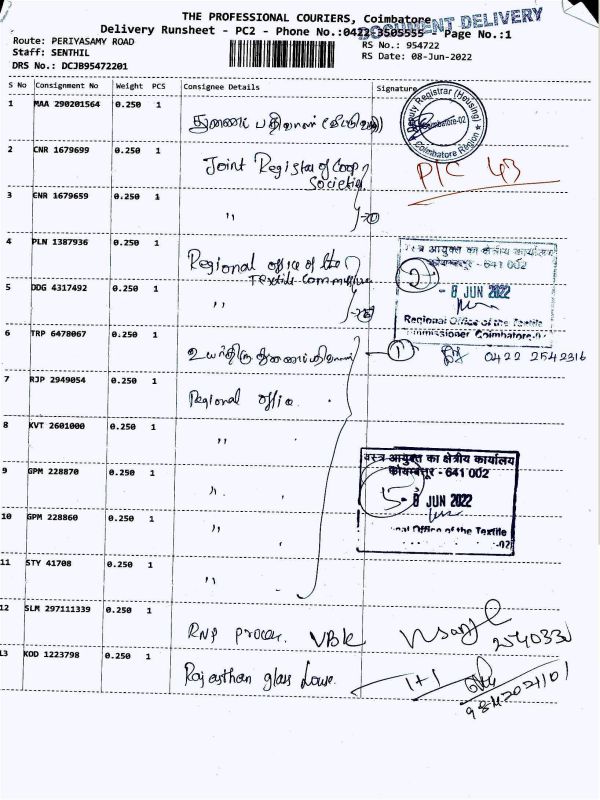 THE PROFESSIONAL COURIERS, Coimbatore
DOCUMENT DELIVERY
Delivery Runsheet - PC2 - Phone No.:0422 3505555 - Page No.:1
Route: PERIYASAMY ROAD
RS No.: 954722
Staff: SENTHIL
RS Date: 08-Jun-2022
DRS No.: DCJB95472201
S No Consignment No Weight PCS Consignee Details Signature
1 MAA 290201564 0.250 1
Deputy Registrar (Housing)
Coimbatore-02
Coimbatore Region
2 CNR 1679699 0.250 1 Joint Registrar of Coop
Societies
3 CNR 1679659 0.250 1 "
4 PLN 1387936 0.250 1 Regional office of the
Textile
वस्त्र आयुक्त का क्षेत्रीय कार्यालय
कोयम्बत्तूर - 641 002
2
- 8 JUN 2022
Regional Office of the Textile
Commissioner Coimbatore-02
5 DDG 4317492 0.250 1 "
6 TRP 6478067 0.250 1
1
0422 2542316
7 RJP 2949054 0.250 1 Regional office.
8 KVT 2601000 0.250 1 "
वस्त्र आयुक्त का क्षेत्रीय कार्यालय
कोयम्बत्तूर - 641 002
- 8 JUN 2022
Office of the Textile
-02
9 GPM 228870 0.250 1 "
10 GPM 228860 0.250 1 "
11 STY 41708 0.250 1 "
12 SLM 297111339 0.250 1 RNP
13 KOD 1223798 0.250 1 Rajasthan glass house.
1+1